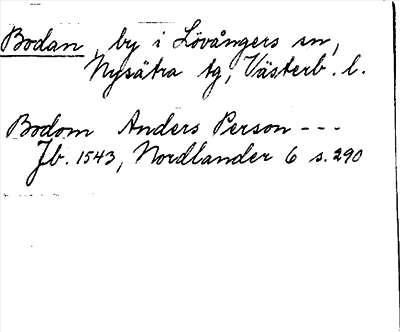 Bodan, by i Lövångers sn,
Nysätra tg, Västerb. l.
Bodom Anders Person - - -
Jb. 1543, Nordlander 6 s. 290